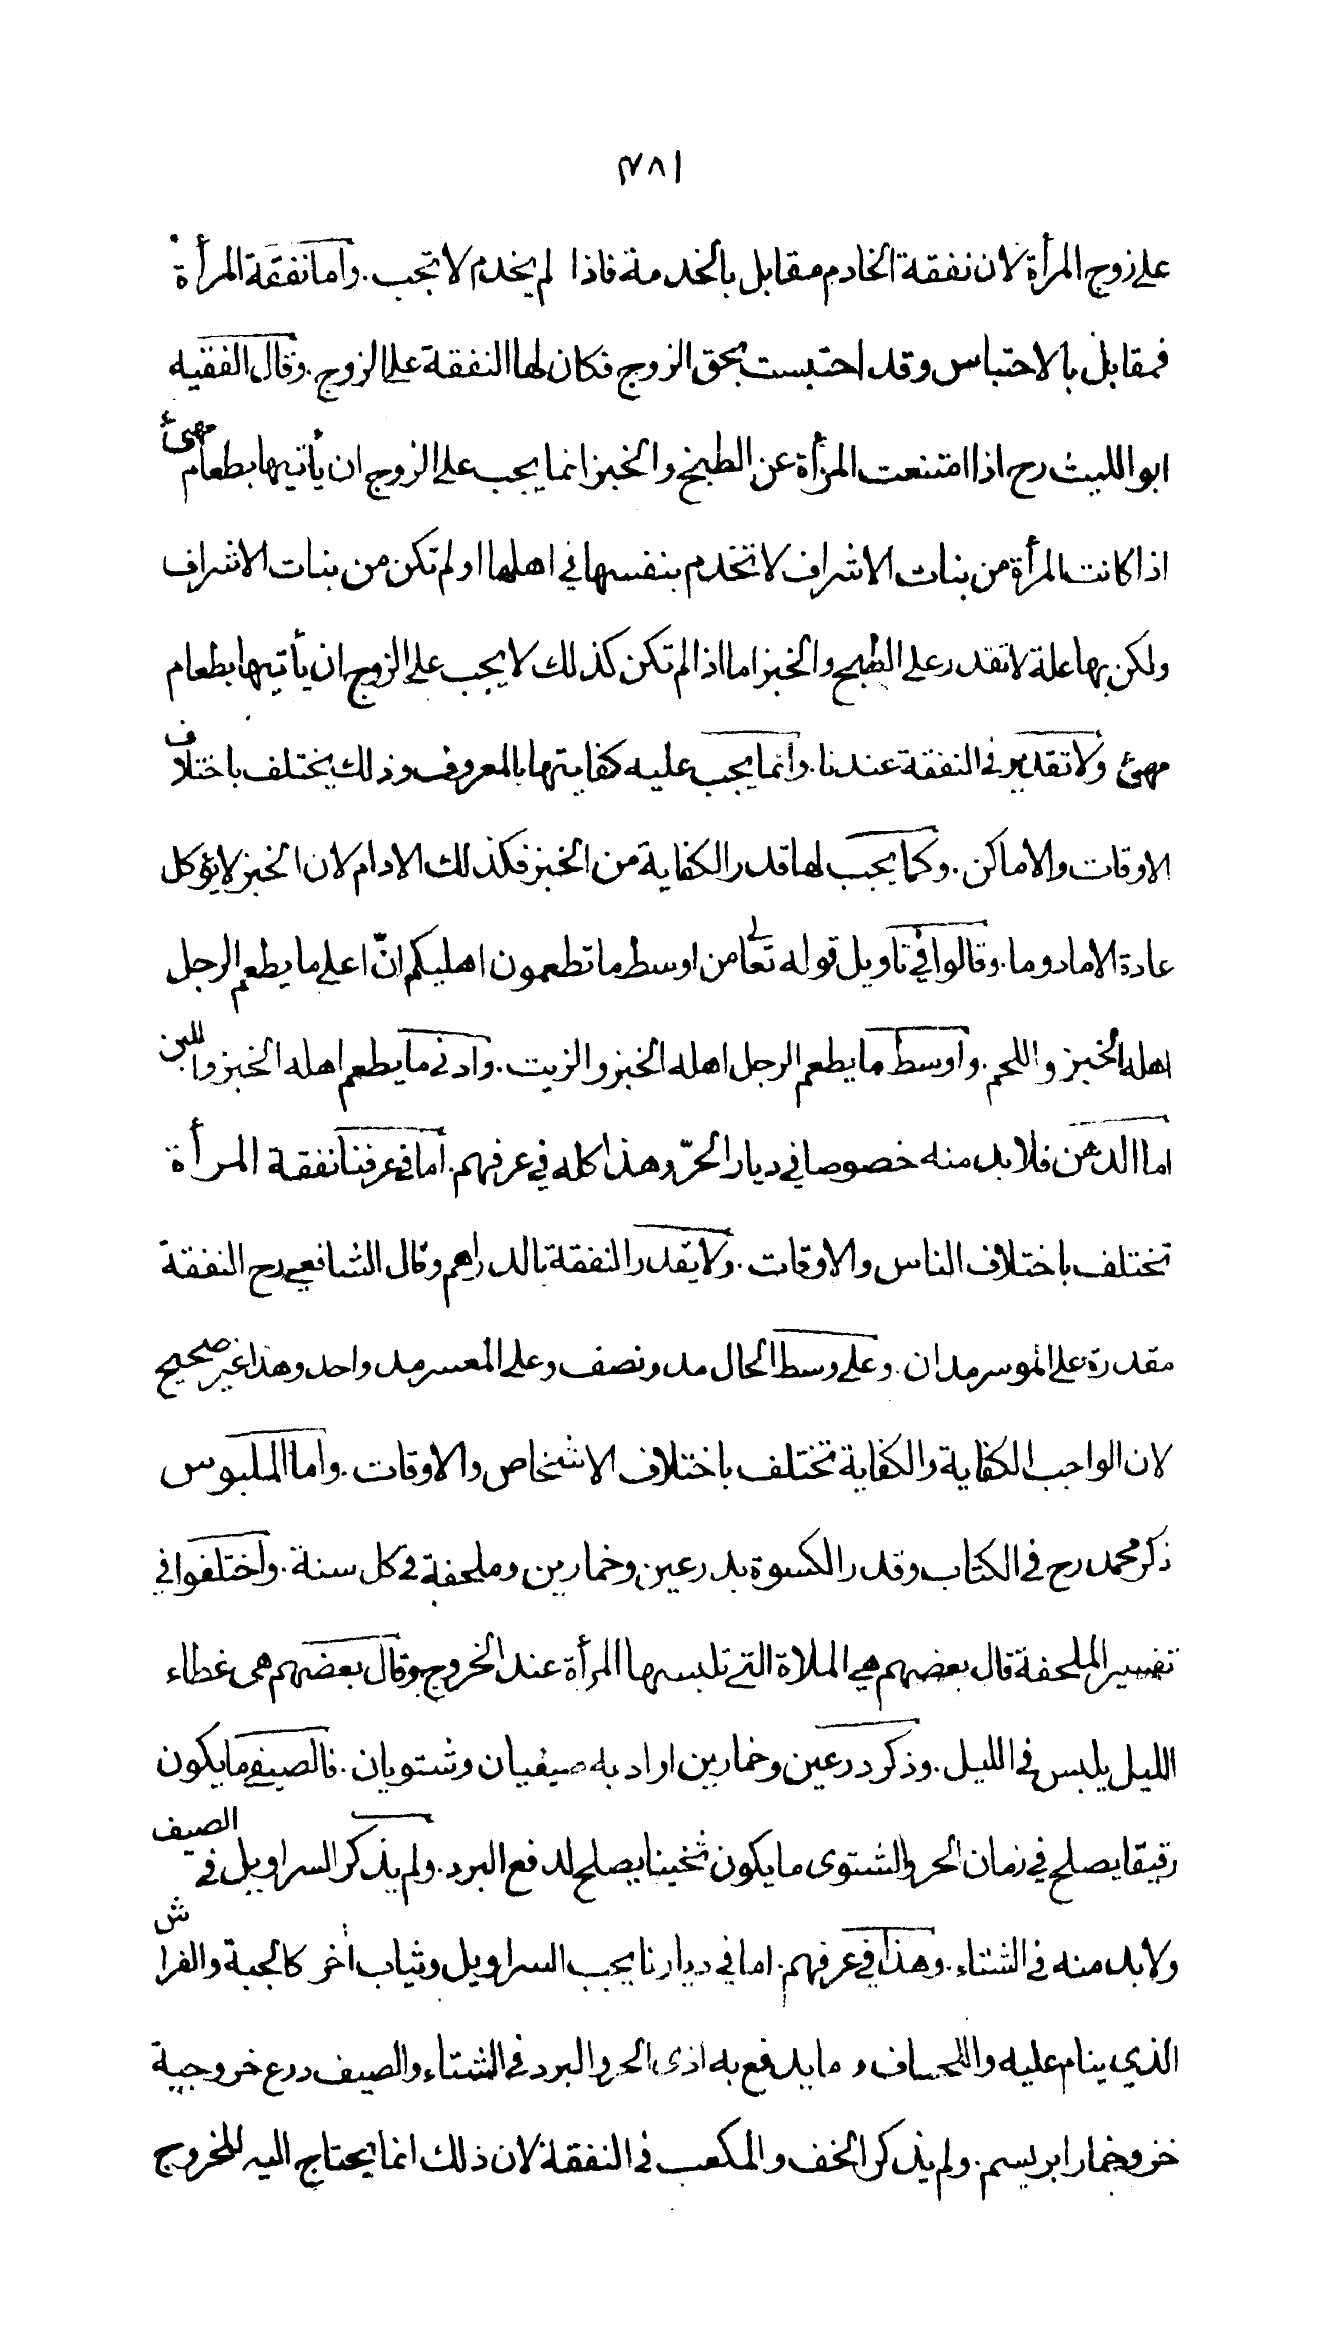 ٤٨١
على زوج المرأة لان نفقة الخادم مقابل بالخدمة فاذا لم يخدم لا تجب. واما نفقة المرأة
فمقابل بالاحتباس وقد احتبست بحق الزوج فكان لها النفقة على الزوج. وقال الفقيه
ابو الليث رح اذا امتنعت المرأة عن الطبخ والخبز انما يجب على الزوج ان يأتيها بطعام مهيئ
اذا كانت المرأة من بنات الاشراف لا تخدم بنفسها في اهلها او لم تكن من بنات الاشراف
ولكن بها علة لا تقدر على الطبخ والخبز اما اذا لم تكن كذلك لا يجب على الزوج ان يأتيها بطعام
مهيئ ولا تقدير في النفقة عندنا. وانما يجب عليه كفايتها بالمعروف وذلك يختلف باختلاف
الاوقات والاماكن. وكما يجب لها قدر الكفاية من الخبز فكذلك الادام لان الخبز لا يؤكل
عادة الا مادوما. وقالوا في تاويل قوله تعالى من اوسط ما تطعمون اهليكم انّ اعلى ما يطعم الرجل
اهله الخبز واللحم. واوسط ما يطعم الرجل اهله الخبز والزيت. وادنى ما يطعم اهله الخبز واللبن
اما الدهن فلا بد منه خصوصا في ديار الحرّ وهذا كله في عرفهم. اما في عرفنا نفقة المرأة
تختلف باختلاف الناس والاوقات. ولا يقدر النفقة بالدراهم وقال الشافعي رح النفقة
مقدرة على الموسر مدان. وعلى وسط الحال مد ونصف وعلى المعسر مد واحد وهذا غير صحيح
لان الواجب الكفاية والكفاية تختلف باختلاف الاشخاص والاوقات. واما الملبوس
ذكر محمد رح في الكتاب وقدر الكسوة بدرعين وخمارين وملحفة في كل سنة. واختلفوا في
تفسير الملحفة قال بعضهم هي الملاة التي تلبسها المرأة عند الخروج وقال بعضهم هي غطاء
الليل يلبس في الليل. وذكر درعين وخمارين اراد به صيفيان وشتويان. فالصيفي ما يكون
رقيقا يصلح في زمان الحر والشتوى ما يكون ثخينا يصلح لدفع البرد. ولم يذكر السراويل في الصيف
ولا بد منه في الشتاء. وهذا في عرفهم. اما في ديارنا يجب السراويل وثياب أخر كالجبة والفراش
الذي ينام عليه واللحاف و ما يدفع به اذى الحر والبرد في الشتاء والصيف درع خروجية
خز وخمار ابريسم. ولم يذكر الخف والمكعب في النفقة لان ذلك انما يحتاج اليه للخروج